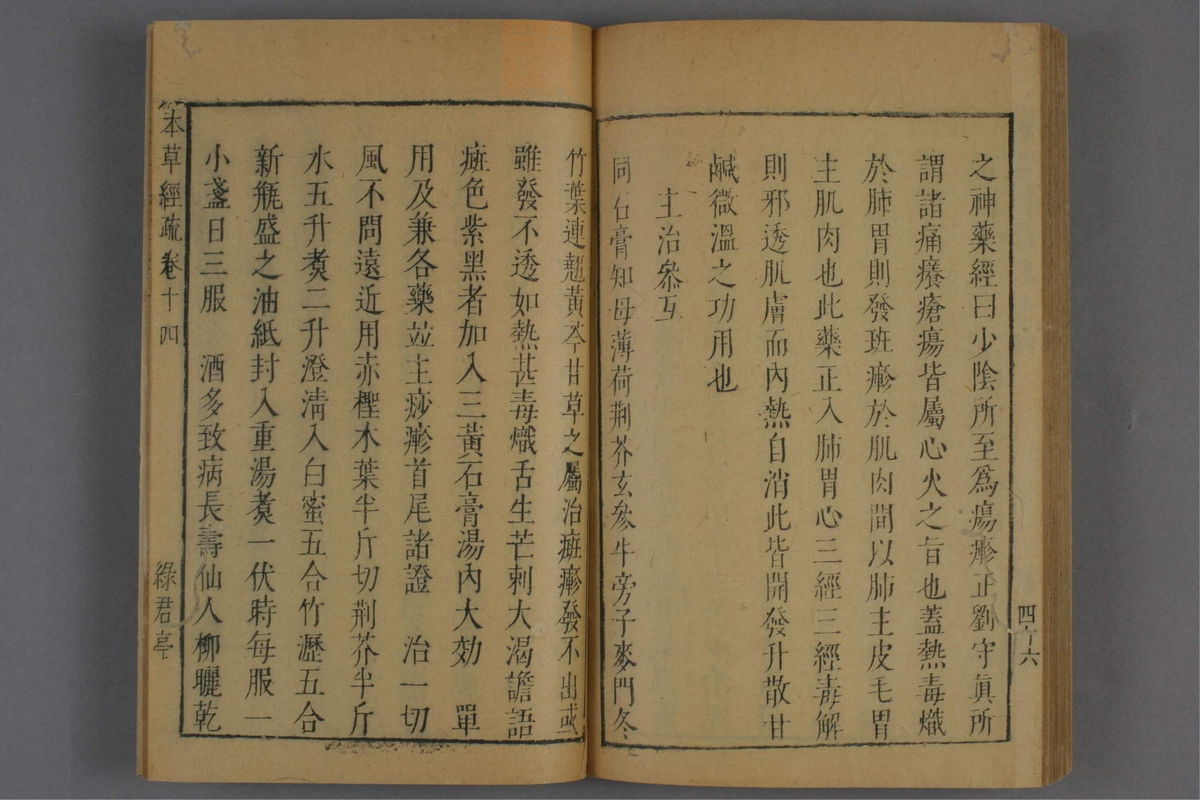 之神藥經曰少陰所至爲瘍疹正劉守眞所
謂諸痛癢瘡瘍皆屬心火之旨也蓋熱毒熾
於肺胃則發班疹於肌肉間以肺主皮毛胃
主肌肉也此藥正入肺胃心三經三經毒解
則邪透肌膚而內熱自消此皆開發升散甘
鹹微溫之功用也
主治叅互
同石膏知母薄荷荆芥玄參牛旁子麥門冬
四十六
竹葉連翹黃芩甘草之屬治斑疹發不出或
雖發不透如熱甚毒熾舌生芒刺大渴譫語
斑色紫黑者加入三黃石膏湯內大効　單
用及兼各藥竝主痧疹首尾諸證　治一切
風不問遠近用赤檉木葉半斤切荆芥半斤
水五升煑二升澄淸入白蜜五合竹瀝五合
新甁盛之油紙封入重湯煑一伏時每服一
小盞日三服　酒多致病長壽仙人柳曬乾
本草經疏 卷十四 綠君亭